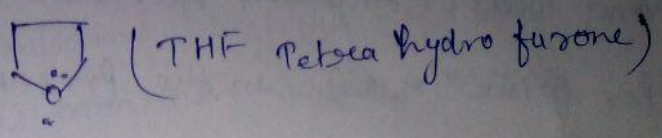 O (THF Petra hydro furone)